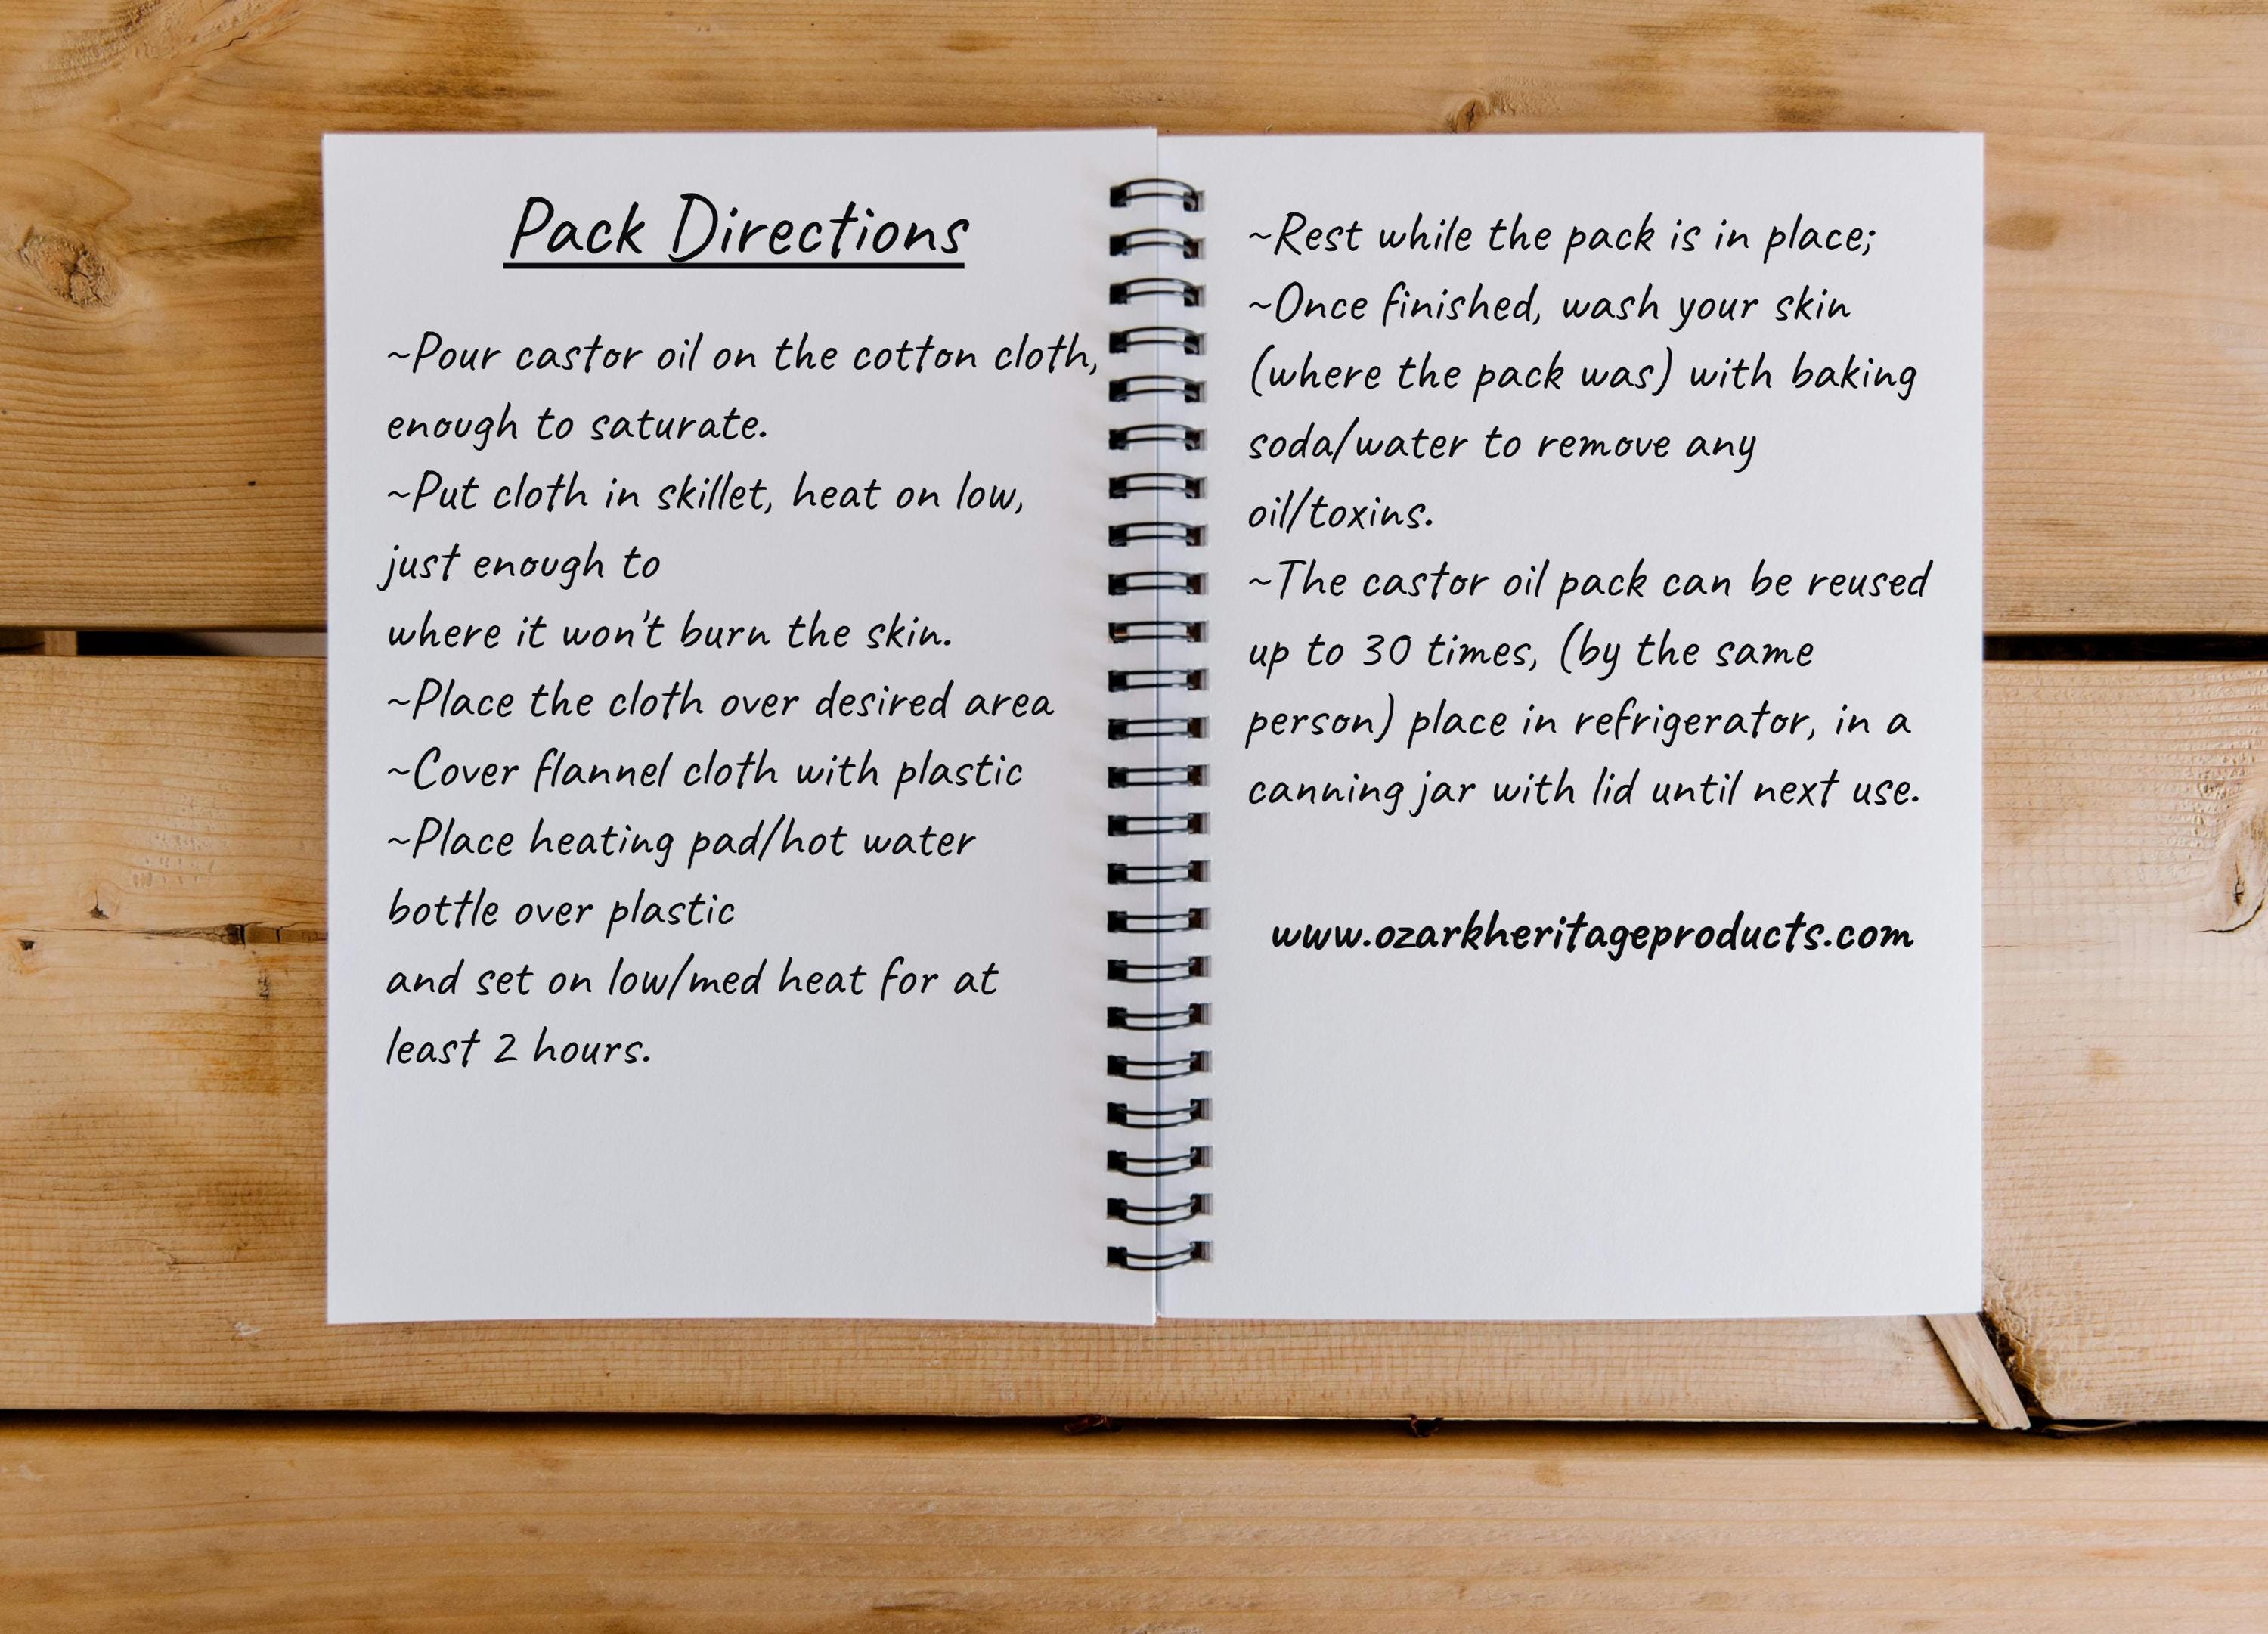 Pack Directions
~Pour castor oil on the cotton cloth,
enough to saturate.
~Put cloth in skillet, heat on low,
just enough to
where it won't burn the skin.
~Place the cloth over desired area
~Cover flannel cloth with plastic
~Place heating pad/hot water
bottle over plastic
and set on low/med heat for at
least 2 hours.
~Rest while the pack is in place;
~Once finished, wash your skin
(where the pack was) with baking
soda/water to remove any
oil/toxins.
~The castor oil pack can be reused
up to 30 times, (by the same
person) place in refrigerator, in a
canning jar with lid until next use.
www.ozarkheritageproducts.com